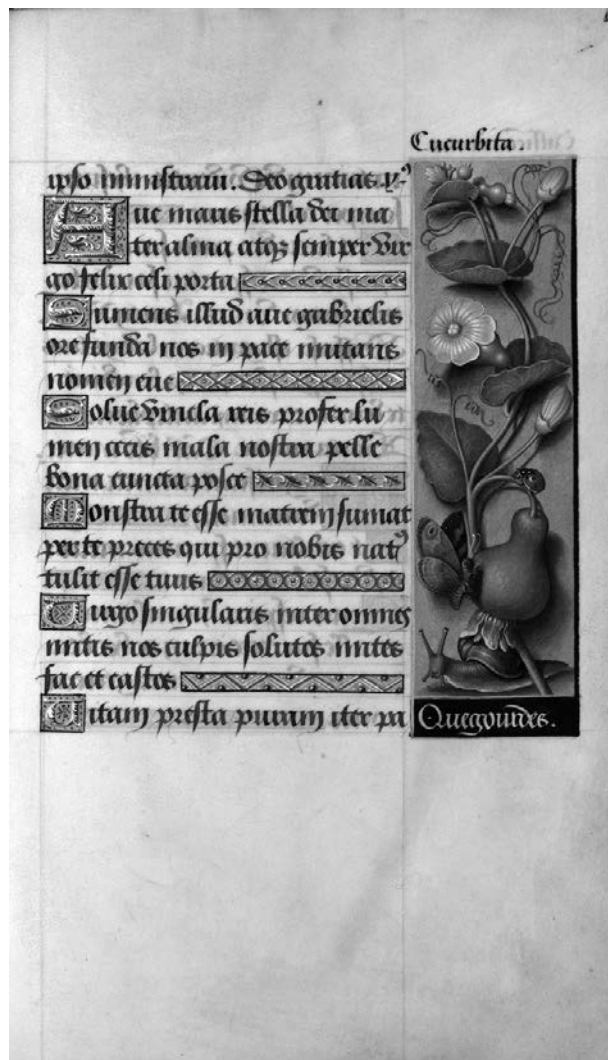 Cucurbita.
ipso ministrauit. Deo gratias. ym̄9
Aue maris stella dei ma
ter alma atq; semper vir
go felix celi porta
Sumens illud aue gabrielis
ore funda nos in pace mutans
nomen eue
Solue vincla reis profer lu
men cecis mala nostra pelle
bona cuncta posce
Monstra te esse matrem sumat
per te preces qui pro nobis nat9
tulit esse tuus
Uirgo singularis inter omnes
mitis nos culpis solutos mites
fac et castos
Uitam presta puram iter pa
Quegourdes.